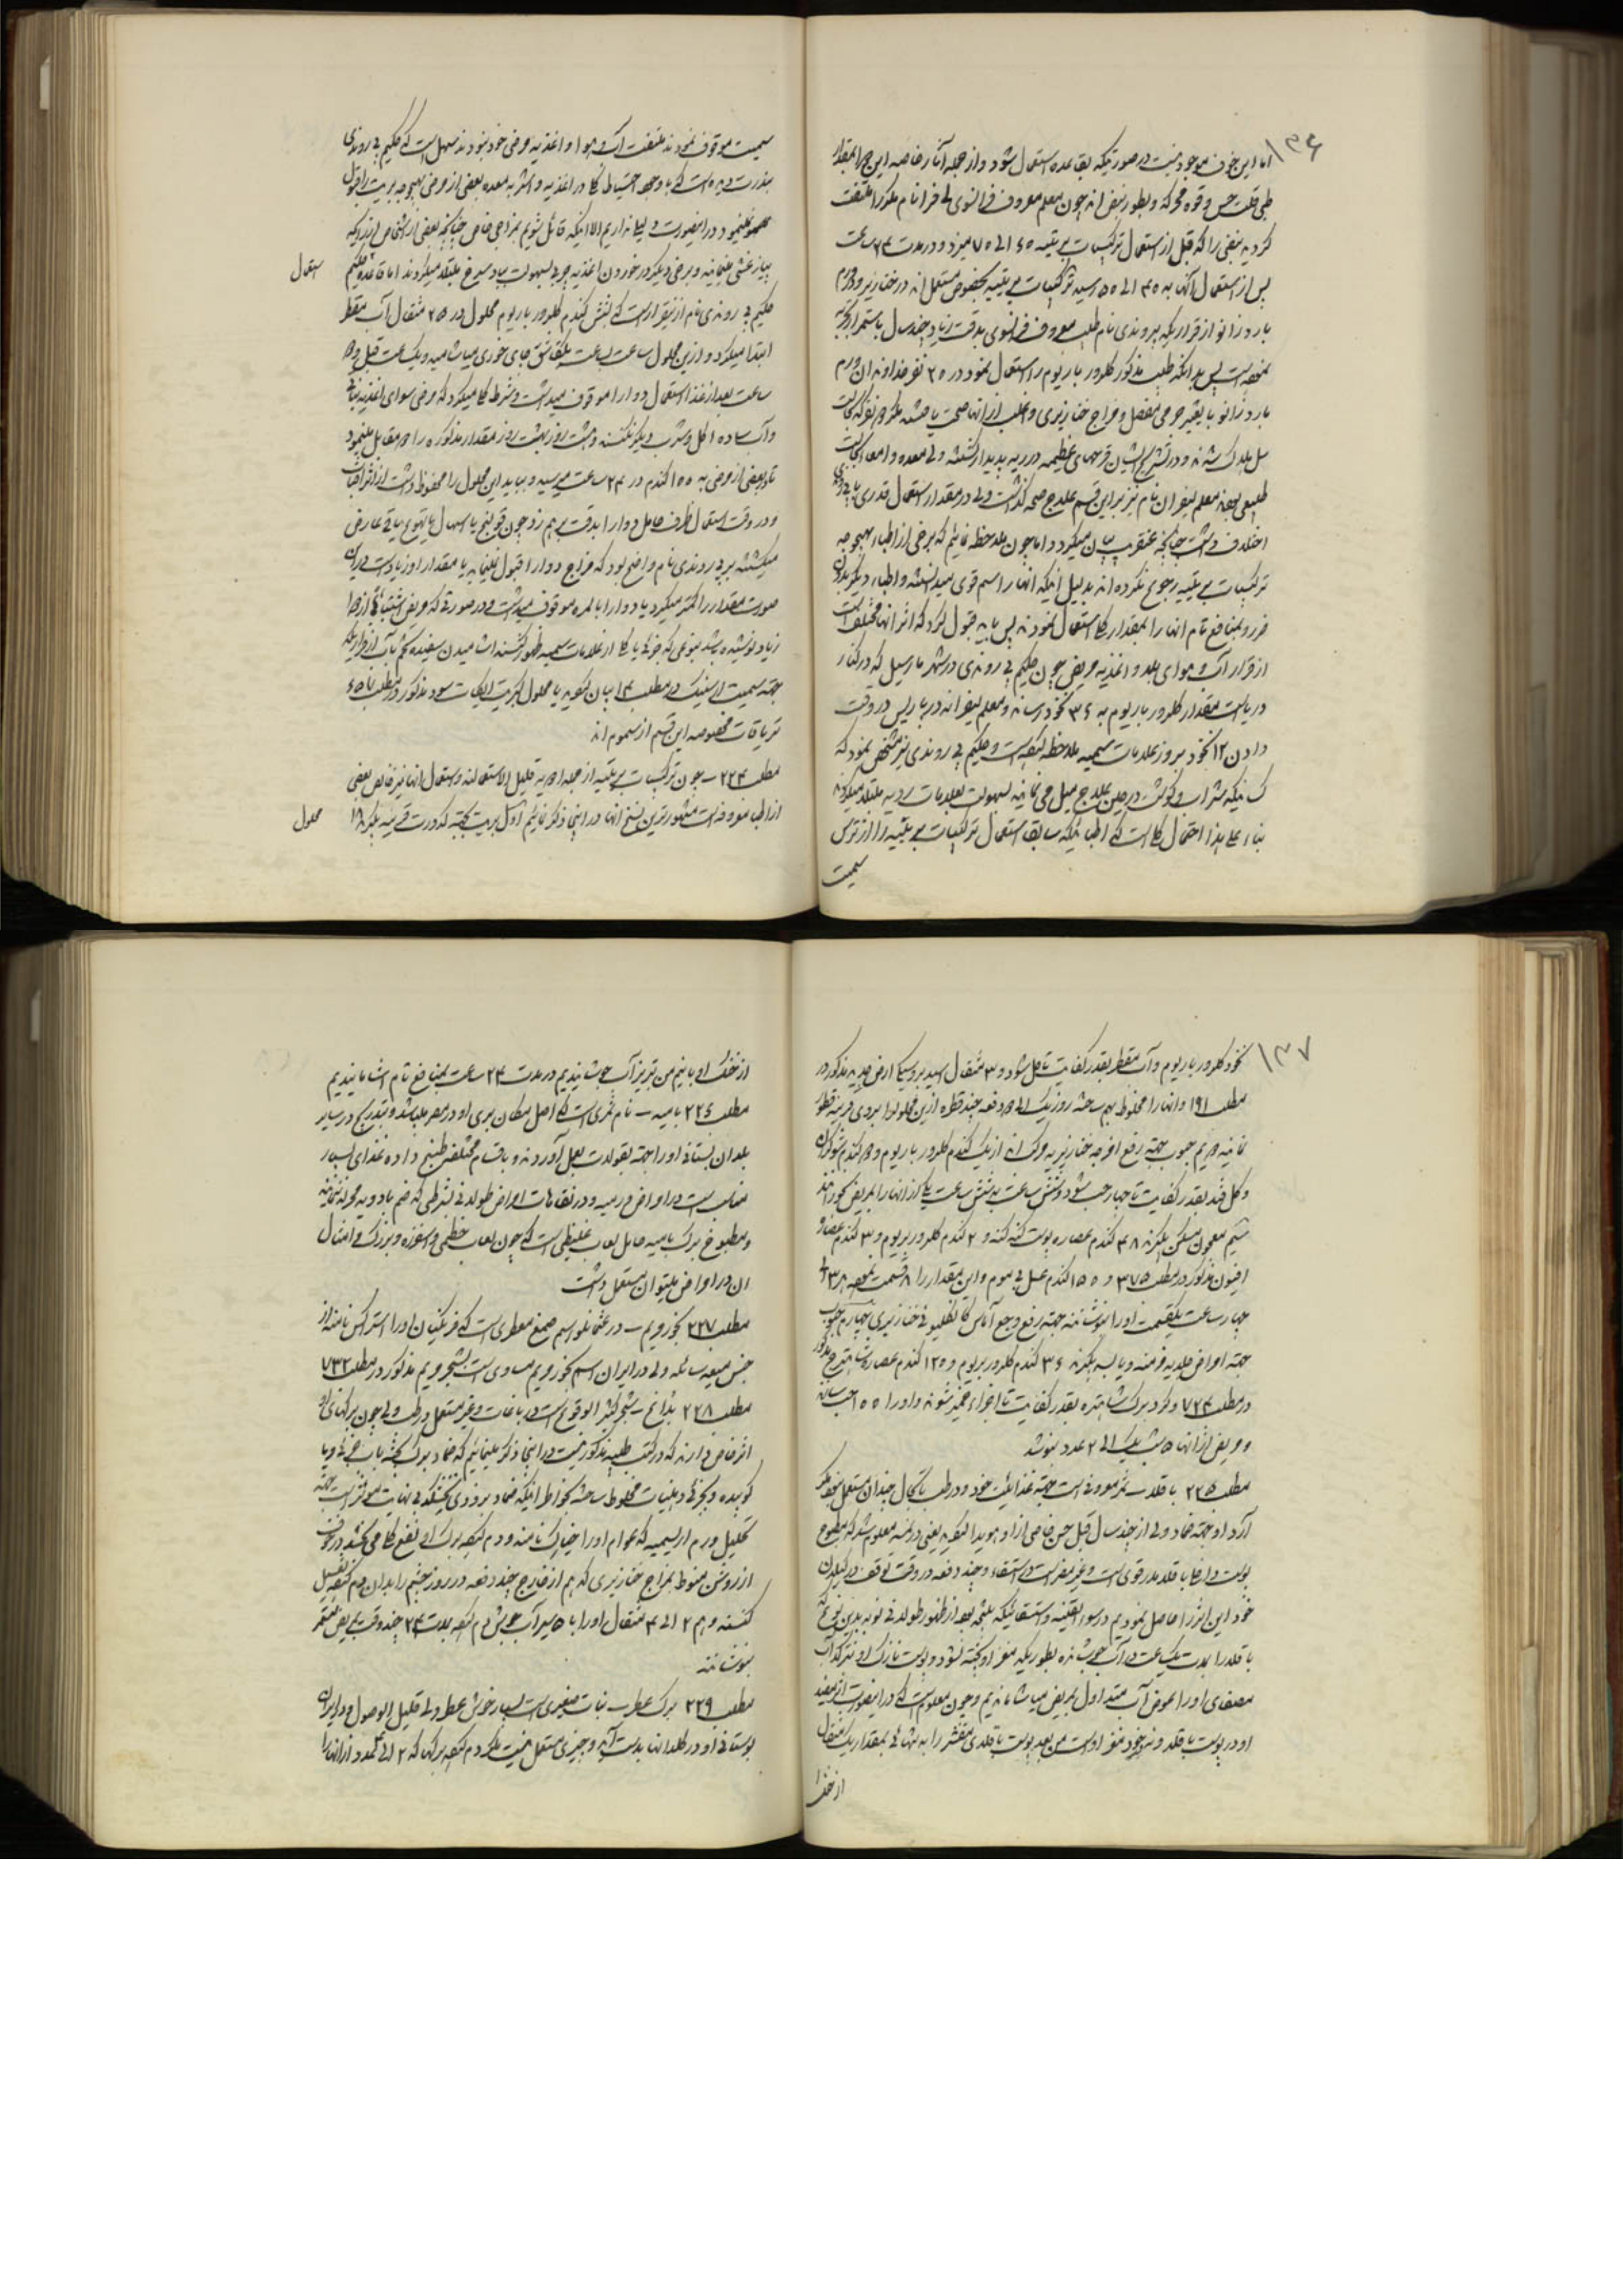 ۱۳۶
اما این خوف موجود نیست در صورتیکه بقاعده استعمال شود و از جمله آثار خاصه این جزء بمقدار
طبی قلت حس و قوه محرکه و بطور نبض اند چون معلم معروف فرانسوی نام مذکور ملتفت
کردید نبضی را که قبل از استعمال ترکیبات بریتیه ۶۵ الی ۷۵ میزد و در مدت ۲۴ ساعت
پس از استعمال آنها به ۴۵ الی ۵۵ رسید ترکیبات بریتیه بخصوص مستعمل اند در خنازیر و ورم
بارد زانو از قراریکه پیروندی نام طبیب معروف فرانسوی بدقت زیاد چند سال باستمرار تجربه
نموده است پس بدانکه طبیب مذکور کلرور باریوم را استعمال نمود در ۲۵ نفر خداوندان ورم
بارد زانو با تغییر جرمی مفصل و مزاج خنازیری و اغلب از آنها صحت یافتند مگر نفر که بعلت
سل هلاک شدند و در تشریح ایشان قرحهای عظیمه در ریه پدیدار گشته ولی معده و امعا بحالت
طبیعی بودند معلم لیفران نام نیز بر این قسم علاج صحه گذاشت ولی در مقدار استعمال قدری با پیروندی
اختلاف داشت چنانچه عنقریب بیان میگردد اما چون ملاحظه نمائیم که برخی از اطباء بهیچوجه
ترکیبات بریتیه رجوع نکرده اند بدلیل آنکه آنها را سم قوی میدانسته و اطباء دیگر بدون
ضرر و بمنافع تام آنها را بمقدار کلی استعمال نمودند پس باید قبول کرد که اثر آنها مختلف است
از قرار آب و هوای بلد و اغذیه مریض چون حکیم پیروندی در شهر مارسیل که در کنار
دریاست مقدار کلرور باریوم به ۳۶ نخود رسانده و معلم لیفران در پاریس در وقت
دادن ۱۲ نخود بروز علامات سمیه ملاحظه کرده است و حکیم پیروندی نیز مشخص نمود که
کسانیکه شراب و گوشت در حین علاج میل می نمایند بسهولت بعلامات ردیه مبتلا میگردند
بناء علی هذا احتمال کلی است که اطبائیکه سابق استعمال ترکیبات بریتیه را از ترس
سمیت
سمیت موقوف نمودند ملتفت آب و هوا و اغذیه مرضی خود نبودند سهل است که حکیم پیروندی
بندرت دیده است که با وجود احتیاط کلی در اغذیه و اشربه معده بعضی از مرضی بهیچوجه بریت را قبول
هضم نمینمود و در اینصورت دلیلی نداریم الا اینکه قائل شویم بمزاجی خاص چنانچه بعضی از اشخاص از بوی
پیاز غشی مینمایند و برخی دیگر در خوردن اغذیه چرب بسهولت بباد سرخ مبتلا میگردند اما قاعده حکیم
استعمال
حکیم پیروندی نام از اینقرار است که شش گندم کلرور باریوم محلول در ۲۵ مثقال آب مقطر
ابتدا میکرد و ازین محلول ساعت بساعت یکقاشق چای خوری میاشامید و یک ساعت قبل و دو
ساعت بعد از غذا استعمال دوا را موقوف میداشت و شرط کلی میکرد که مرضی سوای اغذیه نباتی
و آب ساده اکل و شرب دیگر نکنند و هشت روز بهشت روز مقدار مذکوره را دو مقابل مینمود
تا در بعضی از مرضی به ۱۵۵ گندم در ۲۴ ساعت میرسید و میباید این محلول را محفوظ داشت از اثر آفتاب
و در وقت استعمال ظرف حامل دوا را بدقت بهم زد چون قولنج یا اسهال یا تهوع یا قی عارض
میگشته بر پیروندی نام واضح بود که مزاج دوا را قبول نمینماید یا مقدار او زیاد است در این
صورت مقدار را کمتر میکرد یا دوا را بالمره موقوف میداشت و در صورتی که مریض اشتباهی از دوا
زیاد نوشیده باشد بنوعی که جزئی یا کلی از علامات سمیه ظهور گشته اشامیدن سفیده تخم با آب از قراریکه
جهته سمیت ارسنیک در مطلب ۱۴ بیان کنیم یا محلول کبریت الکیات سود مذکور در مطلب
تریاقات مخصوصه این قسم از سموم اند
مطلب ۲۲۴ – چون ترکیبات بریتیه از جمله ادویه قلیل الاستعمالند و استعمال آنها نیز خالص بعضی
از اطبا معروف است مشهورترین نسخ آنها در اینجا ذکر نمائیم اول بریت بجهته کدورت قرنیه بگیرند ۱۸
محلول
۱۳۷
نخود کلرور باریوم و آب مقطر بقدر کفایت تا حل شود و ۳ مثقال اسید بروسیک ارض جدید مذکور در
مطلب ۱۹۱ و آنها را مخلوط بهم ساخته روز یک الی دو دفعه چند قطره ازین محلول را بروی قرنیه قطور
نمایند دویم حبوب جهته رفع اوجه خنازیریه مرکب اند از یک گندم کلرور باریوم و دو گندم شوکران
و گل قند بقدر کفایت تا چهار حب شود و شش ساعت به شش ساعت یکی از آنها را بمریض بخورانند
سیم معجون مسکن بگیرند ۴۸ گندم عصاره پوست کنه کنه و ۲ گندم کلرور بریوم و ۳ گندم عصاره
افیون مذکور در مطلب ۳۷۵ و ۱۵۵ گندم عسل بی موم و این مقدار را ۸ قسمت نموده هر ۳ یا
چهار ساعت یکقسمت او را بنوشانند جهته رفع وجع آماس کانگلیونی خنازیری چهارم حبوب
جهته امراض جلدیه مزمنه و یابسه بگیرند ۳۶ گندم کلرور بریوم و ۱۲۵ گندم عصاره شاهترج مذکور
در مطلب ۷۲۴ و گرد برگ شاهتره بقدر کفایت تا اجزاء خمیر شوند و او را ۱۵۵ حب ساخته
و مریض از آنها شب یک الی ۲ عدد بنوشد
مطلب ۲۲۵ باقلا – ثمر معروفی است جهته غذائیت خود و در طب تا بحال چندان مستعمل نبود مگر
آرد او جهته ضماد ولی از چند سال قبل حس خاصی از او هویدا گردید یعنی در نمسه معلوم شد که مطبوخ
پوست دارای باقلا مدر قوی است و غیر مضر است در استسقاء و چند دفعه در وقت توقف در گیلان
خود این اثر را حاصل نمودیم در سوء القنیه و استسقائیکه بنتیجه بعد از ظهور طولانی نوبه بدین نوع که
باقلا را مدت یک ساعت در آب جوشانده بطوریکه مغز او پخته نشود و پوست نازک او نترکد آب
مصفای او را عوض آب مبتدا اول بمریض میاشامانیدیم و چون معلوم گشت که در اینصورت اثر مفید
او در پوست باقلا و نه در خود مغز اوست من بعد پوست باقلای مقشر را به تنهائی بمقدار یک مثقال
از خشک
از خشک او با نیم من تبریز آب جوشانیدیم در مدت ۲۴ ساعت بمنافع تام اشامانیدیم
مطلب ۲۲۶ بامیه – نام ثمری است که اصل مکان بری او در مصر میباشد و بتدریج در سایر
بلدان بستانی او را جهته بقولات بعمل آوردند و باقسام مختلفه طبخ داده غذای بسیار
مناسب است در امراض ورمیه و در نقاهات امراض طولانی بشرطی که ضم بادویه محرکه ننمایند
و مطبوخ برگ بامیه حامل لعاب غلیظی است که چون لعاب خطمی و اسفرزه و بزرک و امثال
آن در امراض میتوان مستعمل داشت
مطلب ۲۲۷ بخور مریم – در عثمانلو اسم صمغ معطری است که فرنگیان او را استراکس نامند از
جنس میعه سائله ولی در ایران اسم بخور مریم مساوی است بشجر مریم مذکور در مطلب ۷۳۲
مطلب ۲۲۸ بذانج – شجر کثیر الوقوع است در باغات و غیر مستعمل در طب ولی چون برگهای او
اثر خاص دارند که در کتب طبیه مذکور نیست در اینجا ذکر مینمائیم که ضماد برگ پخته باب جزئی و یا
کوبیده و بجزئی دهنیات مخلوط ساخته بخواطر اینکه ضماد بزودی نخشکد بی نهایت مؤثر است جهته
تحلیل ورم اریسمیه که عوام او را خیارک نامند و دم کرده برگ او نفع کلی می بخشد در خوف
از روشنی منوط بمزاج خنازیری که هم از خارج چند دفعه در روز چشم را بدان دم کرده غسل
کنند و هم ۲ الی ۴ مثقال او را با ۵ سیر آب جوش دم کرده بمدت ۲۴ چند وقت بمریض مستمر
بنوشانند
مطلب ۲۲۹ برگ عطر – نبات صغیری است بسیار خوش عطر ولی قلیل الوصول در ایران
بوستانی او در گلدانها بدست آید و چیزی مستعمل نیست مگر دم کرده برگهای که ۲ الی ۳ عدد از آنها را